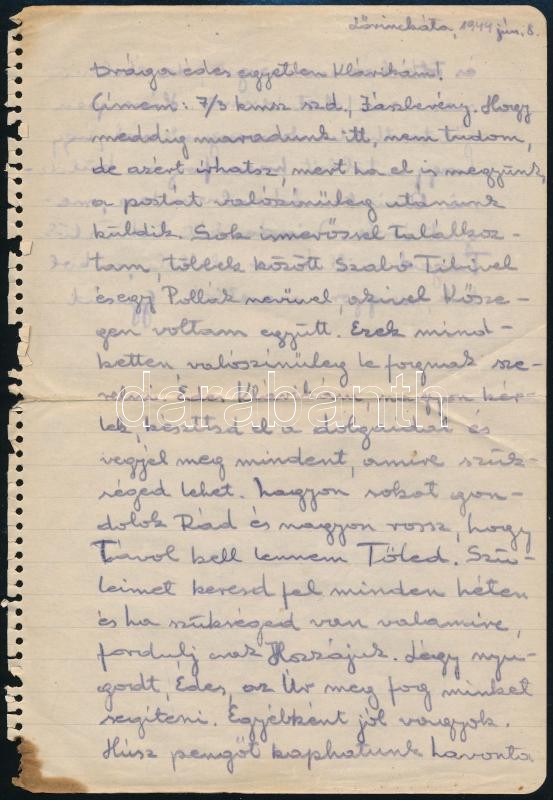 Lőrinckáta, 1944 jún. 8.
Drága édes egyetlen Klárikám!
Címem: 7/3 kmsz szd., Jászberény. Hogy
meddig maradunk itt, nem tudom,
de azért írhatsz, mert ha el is megyünk,
a postát valószínűleg utánunk
küldik. Sok ismerőssel találkoz-
tam, többek között Szabó Tibivel
és egy Pollák nevűvel, akivel Kősze-
gen voltam együtt. Ezek mind-
ketten valószínűleg le fognak sze-
relni. Klárikám, nagyon kér-
lek, készítsd el a dolgaidat és
vegyél meg mindent, amire szük-
séged lehet. Nagyon sokat gon-
dolok Rád és nagyon rossz, hogy
Távol kell lennem Tőled. Szü-
leimet keresd fel minden héten
és ha szükséged van valamire,
fordulj csak Hozzájuk. Légy nyu-
godt, Édes, az Úr meg fog minket
segíteni. Egyébként jól vagyok.
Húsz pengőt kaphatunk havonta
darabanth